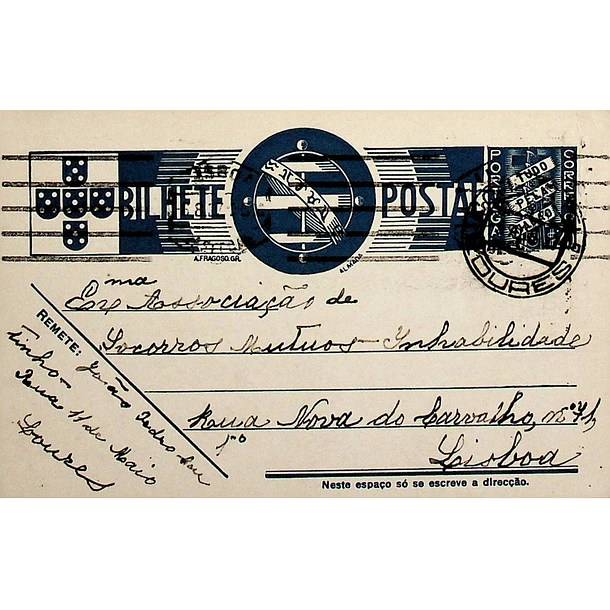 BILHETE POSTAL
PORTUGAL
CORREIO
TUDO
PELA
NAÇÃO
A. FRAGOSO. GR.
ALMADA
LOURES
Exma Associação de
Socorros Mutuos Inhabilidade
Rua Nova do Carvalho, nº 71,
1º
Lisboa
REMETE: João Pedro
tinho
Rua 1º de Maio
Loures
Neste espaço só se escreve a direcção.